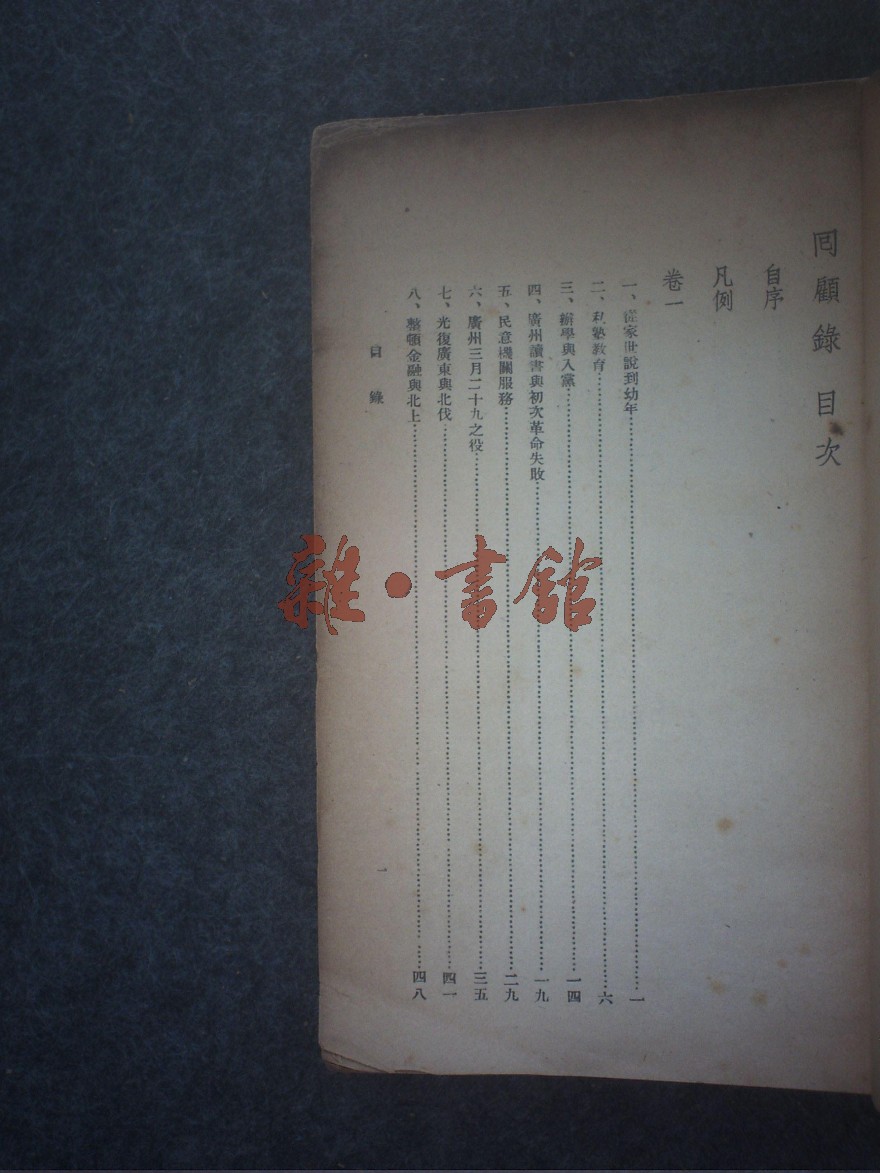 囘顧錄 目次
自序
凡例
卷一
一、從家世說到幼年……一
二、私塾教育……六
三、辦學與入黨……一四
四、廣州讀書與初次革命失敗……一九
五、民意機關服務……二九
六、廣州三月二十九之役……三五
七、光復廣東與北伐……四一
八、整頓金融與北上……四八
目錄
一
雜·書館